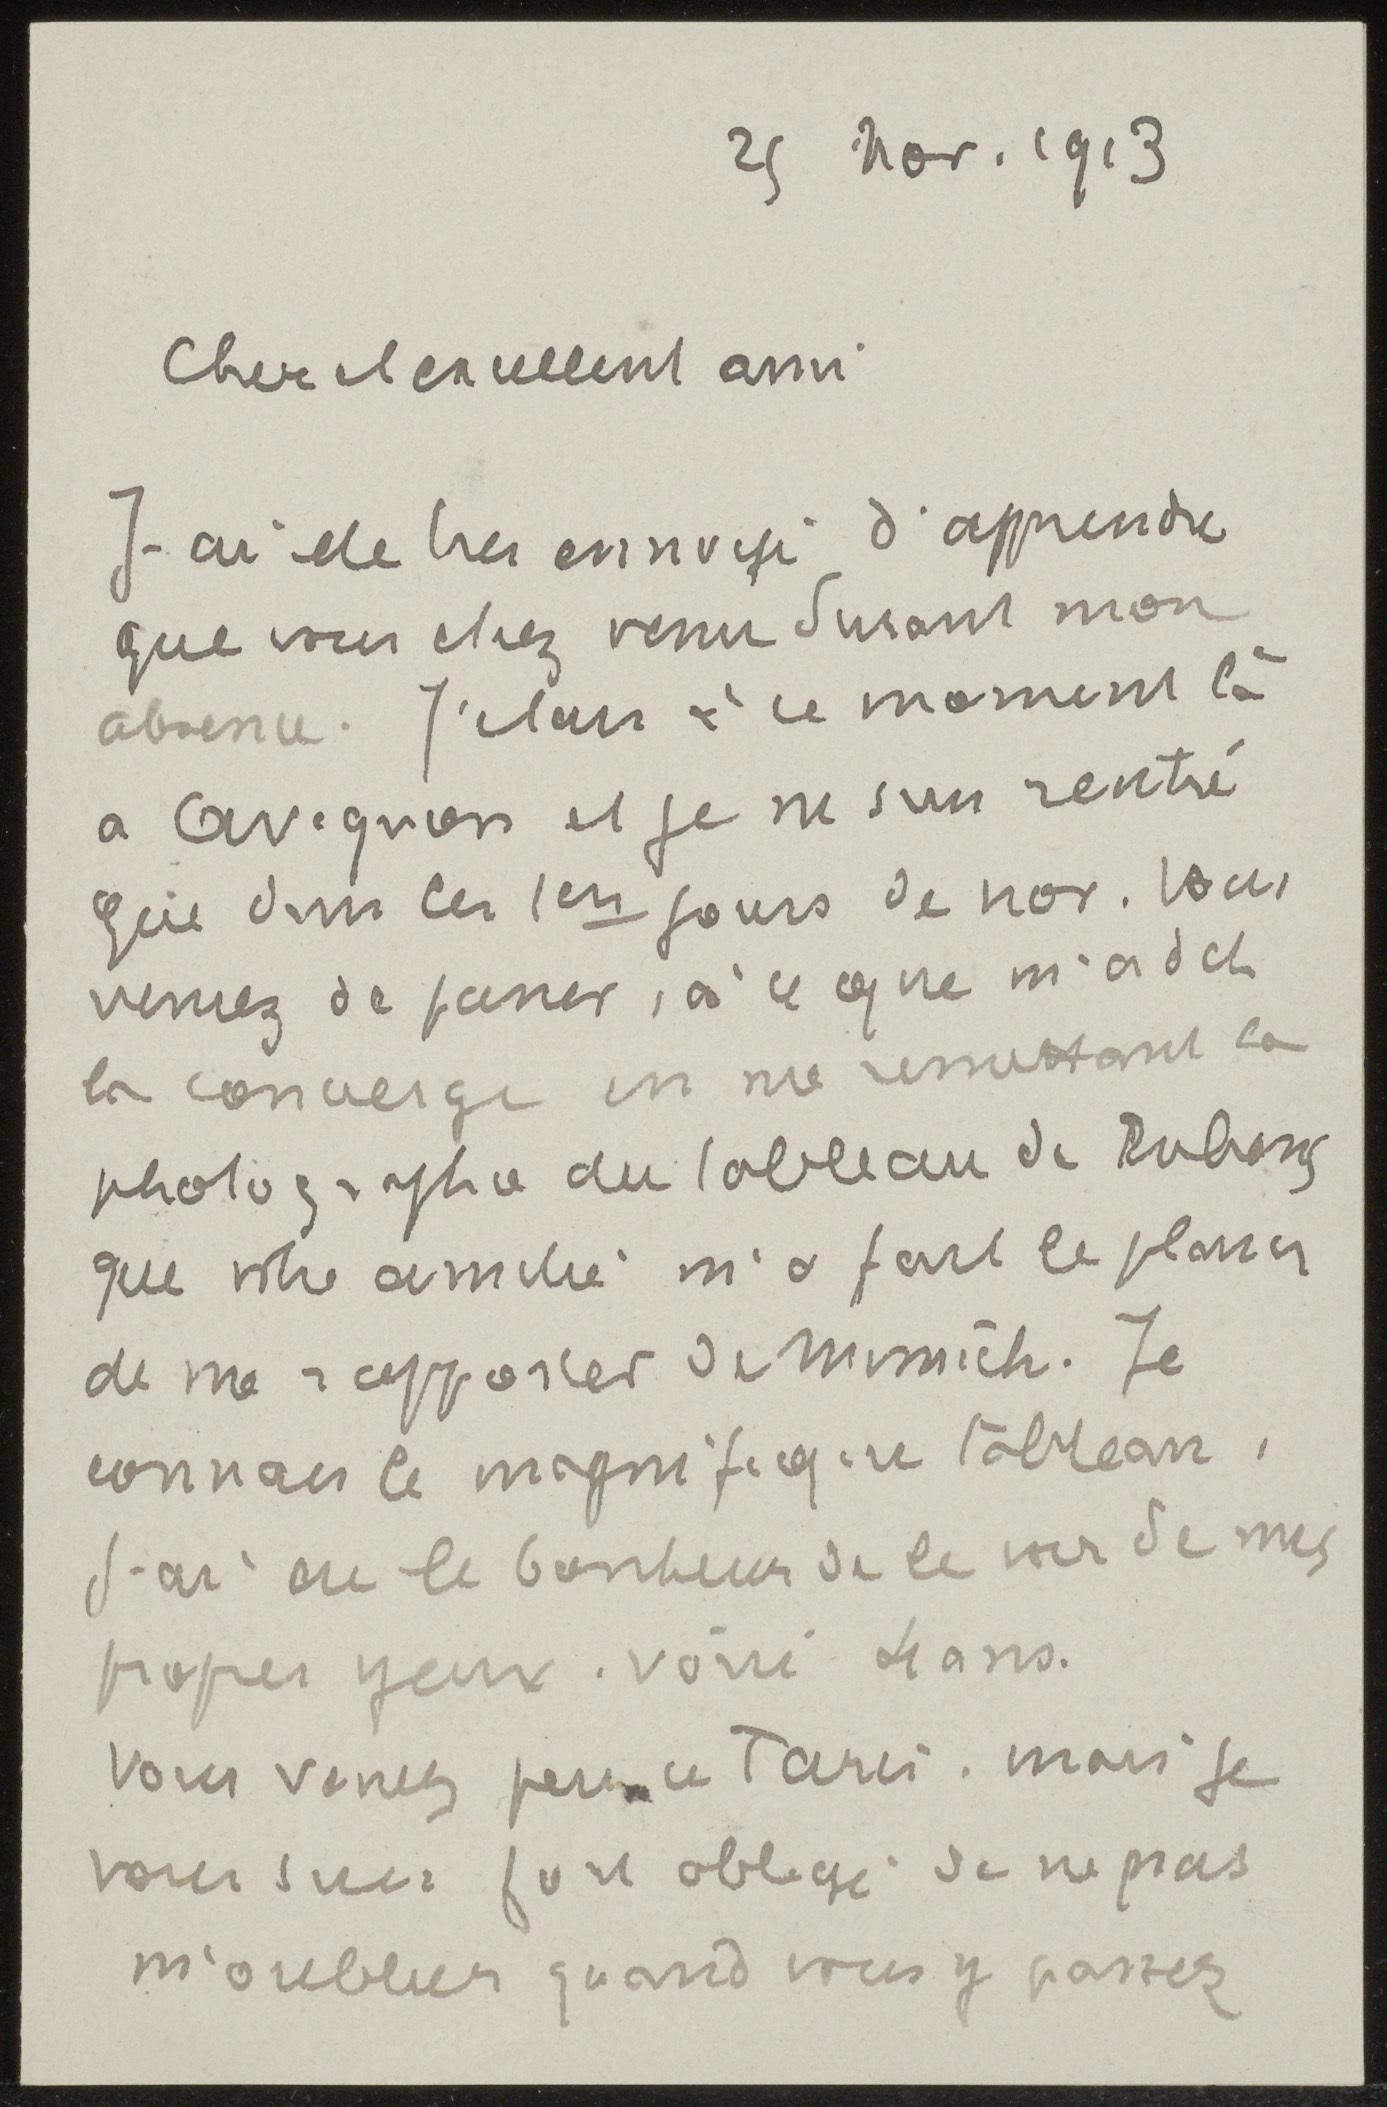 25 Nov. 1913
Cher et excellent ami
J'ai été très ennuyé d'apprendre
que vous étiez venu durant mon
absence. J'étais à ce moment là
a Avignon et je ne suis rentré
que dans les 1ers jours de nov. Vous
veniez de passer, à ce que m'a dit
la concierge en me remettant la
photographie du tableau de Rubens
que votre amitié m'a fait le plaisir
de me rapporter de Munich. Je
connais le magnifique tableau,
j'ai eu le bonheur de le voir de mes
propres yeux. voici ans.
Vous venez peu a Paris. mais je
vous suis fort obligé de ne pas
m'oublier quand vous y passez